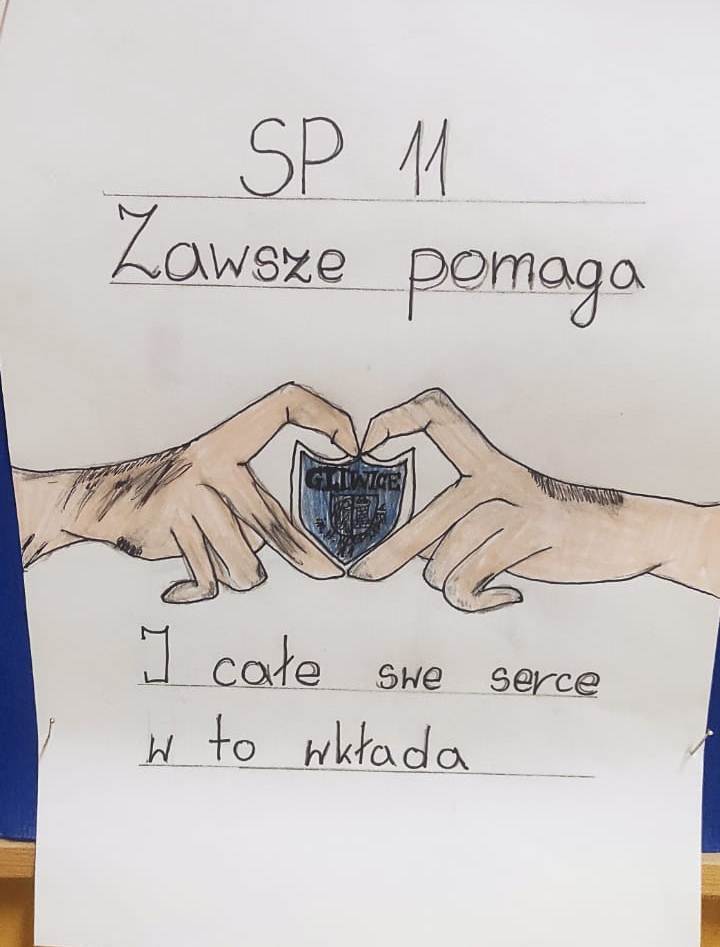 SP 11
Zawsze pomaga
GLIWICE
I całe swe serce
w to wkłada